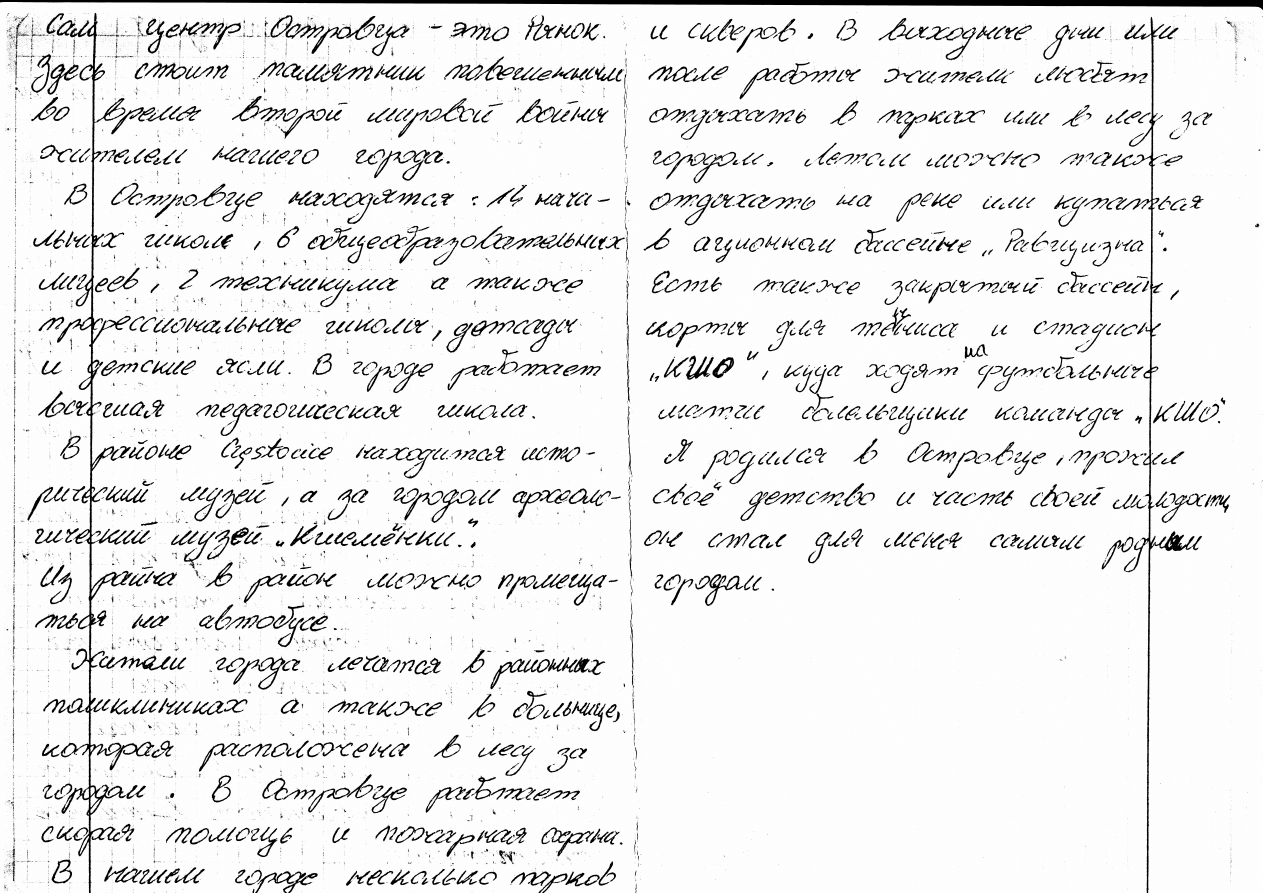 Сам центр Островца - это Рынок.
Здесь стоит памятник повешенным
во время второй мировой войны
жителем нашего города.
В Островце находятся: 14 нача-
льных школ, 6 общеобразовательных
лицеев, 2 техникума а также
профессиональные школы, детсады
и детские ясли. В городе работает
высшая педагогическая школа.
В районе Częstocice находится исто-
рический музей, а за городом археоло-
гический музей „Кшемёнки".
Из райна в район можно промеща-
ться на автобусе.
Жители города лечатся в районных
поликлиниках а также в больнице,
которая расположена в лесу за
городом. В Островце работает
скорая помощь и пожарная охрана.
В нашем городе несколько парков
и скверов. В выходные дни или
после работы жители любят
отдыхать в парках или в лесу за
городом. Летом можно также
отдыхать на реке или купаться
в ационном бассейне „Равщизна".
Есть также закрытый бассейн,
корты для тенниса и стадион
„КШО", куда ходят на футбольные
матчи болельщики команды „КШО".
Я родился в Островце, прожил
своё детство и часть своей молодости,
он стал для меня самым родным
городом.